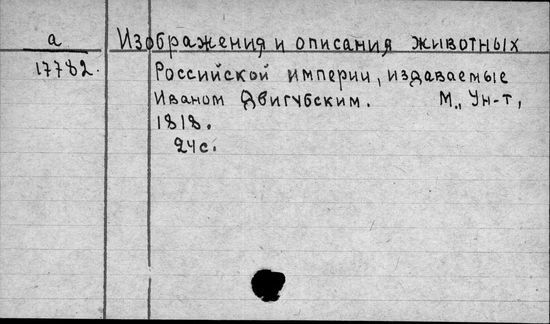 а
17782.
Изображения и описания животных
Российской империи, издаваемые
Иваном Двигубским. М., Ун-т,
1818.
24с.